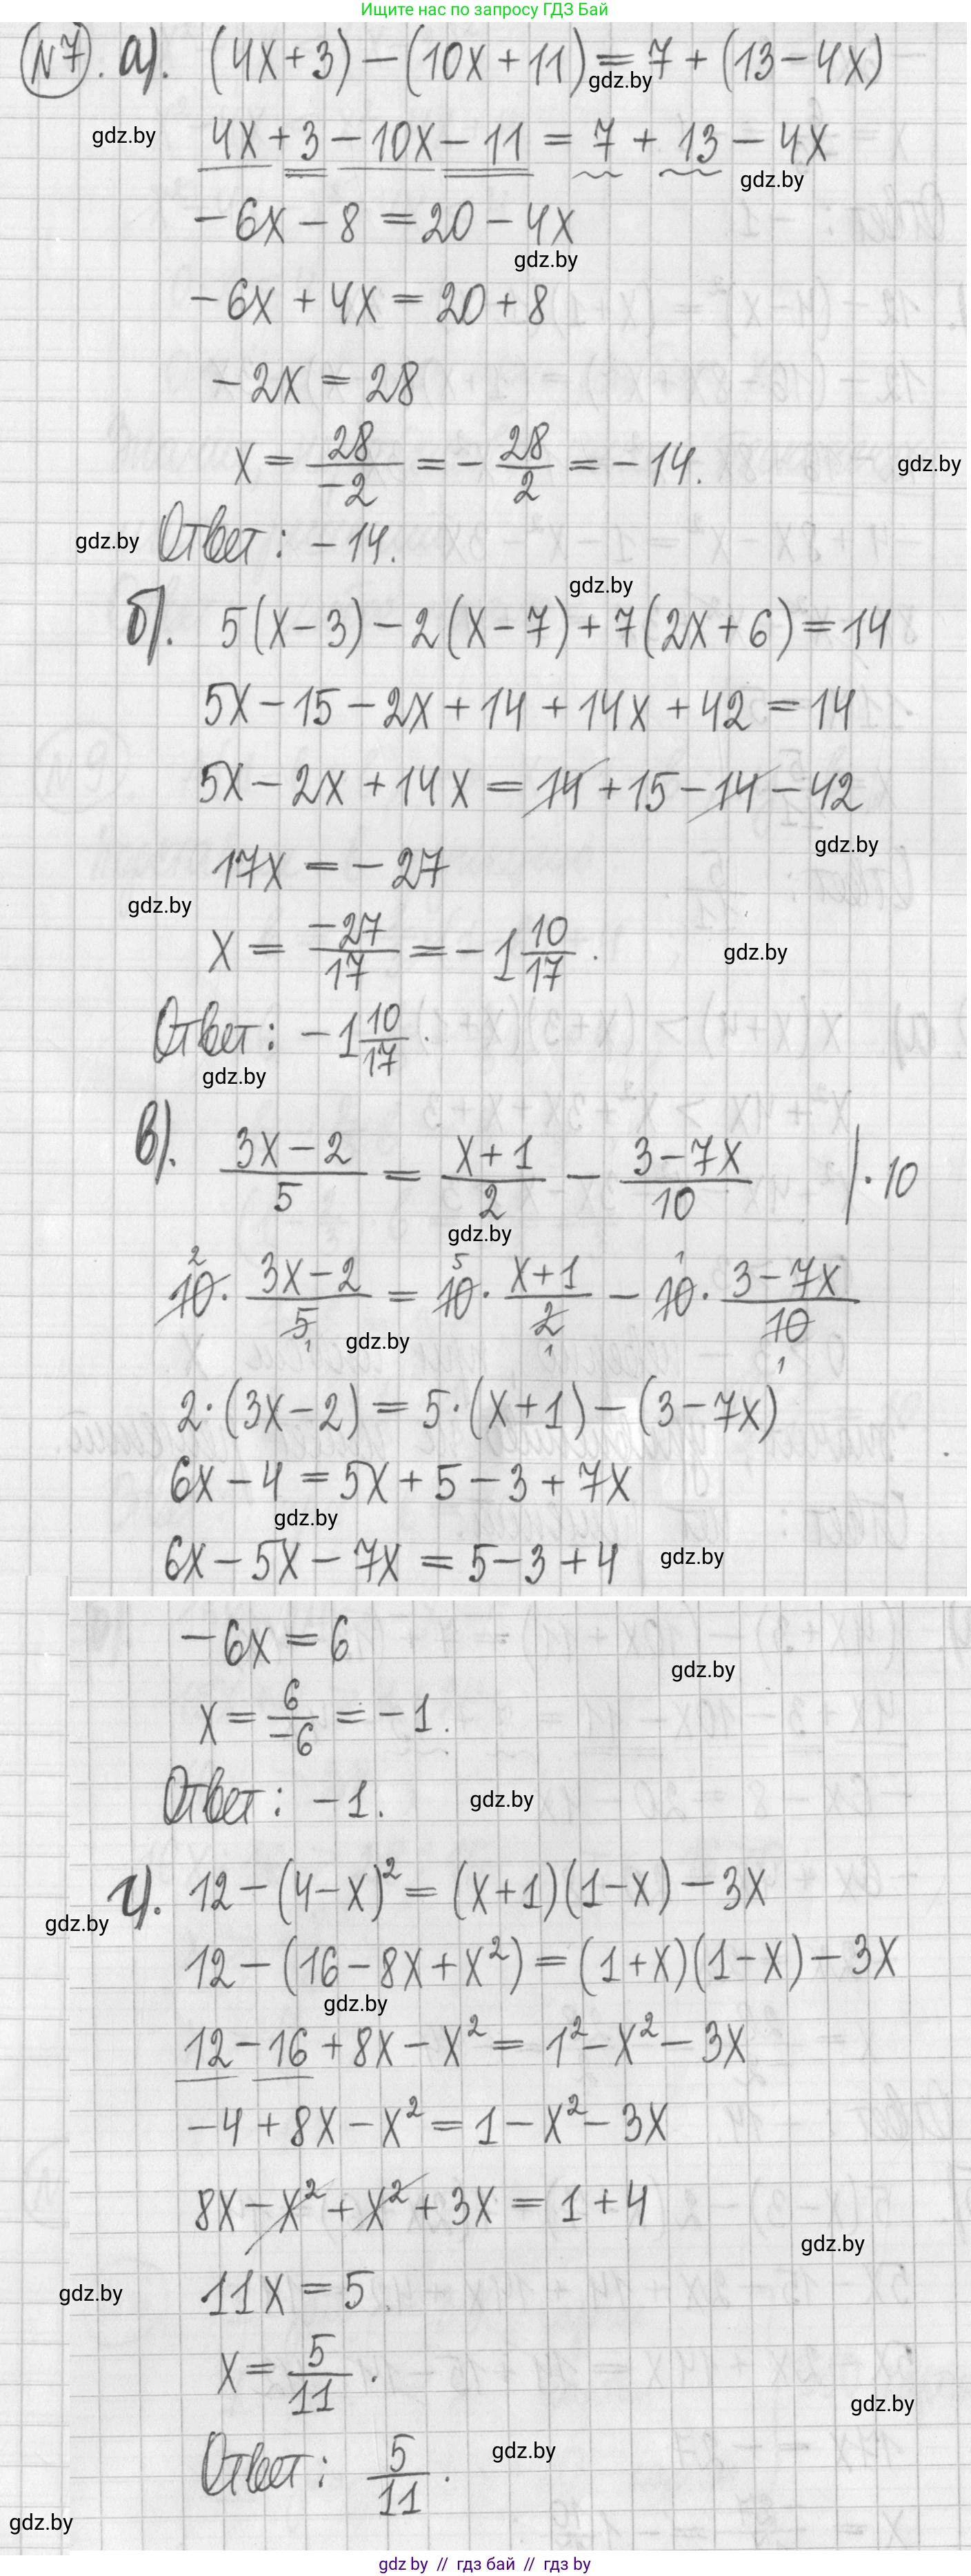 Ищите нас по запросу ГДЗ Бай
№7. а). (4x+3)-(10x+11)=7+(13-4x)
gdz.by
gdz.by
4x+3-10x-11=7+13-4x
gdz.by
-6x-8=20-4x
gdz.by
-6x+4x=20+8
-2x=28
x=28/-2=-28/2=-14.
gdz.by
gdz.by
Ответ: -14.
gdz.by
б). 5(x-3)-2(x-7)+7(2x+6)=14
5x-15-2x+14+14x+42=14
5x-2x+14x=14+15-14-42
gdz.by
17x=-27
gdz.by
x=-27/17=-1 10/17.
gdz.by
Ответ: -1 10/17.
gdz.by
в). (3x-2)/5=(x+1)/2-(3-7x)/10 |·10
gdz.by
2 5 1
10·(3x-2)/5=10·(x+1)/2-10·(3-7x)/10
1 1 1
gdz.by
2·(3x-2)=5·(x+1)-(3-7x)
6x-4=5x+5-3+7x
gdz.by
6x-5x-7x=5-3+4
gdz.by
-6x=6
gdz.by
x=6/-6=-1.
Ответ: -1.
gdz.by
г). 12-(4-x)²=(x+1)(1-x)-3x
gdz.by
12-(16-8x+x²)=(1+x)(1-x)-3x
gdz.by
12-16+8x-x²=1²-x²-3x
-4+8x-x²=1-x²-3x
8x-x²+x²+3x=1+4
gdz.by
11x=5
gdz.by
x=5/11.
gdz.by
Ответ: 5/11.
gdz.by
gdz.by
gdz by // гдз бай // гдз by